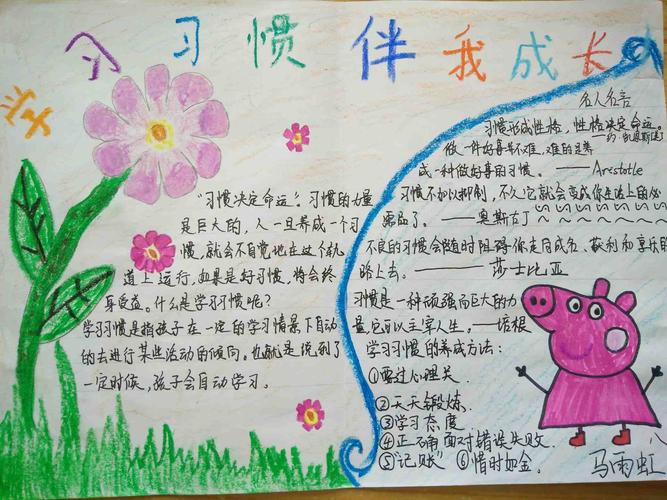 学习习惯伴我成长
"习惯决定命运"。习惯的力量
是巨大的，人一旦养成一个习
惯，就会不自觉地在这个轨
道上运行，如果是好习惯，将会终
身受益。什么是学习习惯呢？
学习习惯是指孩子在一定的学习情景下自动
的去进行某些活动的倾向。也就是说，到了
一定时候，孩子会自动学习。
名人名言
习惯形成性格，性格决定命运。
——约·凯恩斯
做一件好事并不难，难的是养
成一种做好事的习惯。——Arestotle
习惯不加以抑制，不久它就会变成你生活上的必
需品了。——奥斯古丁
不良的习惯会随时阻碍你走向成名、获利和享乐的
路上去。——莎士比亚
习惯是一种顽强而巨大的力
量，它可以主宰人生。——培根
学习习惯的养成方法：
①要过心理关
②天天锻炼.
③学习态度
④正确面对错误失败.
⑤"记账" ⑥惜时如金.
八
马雨虹